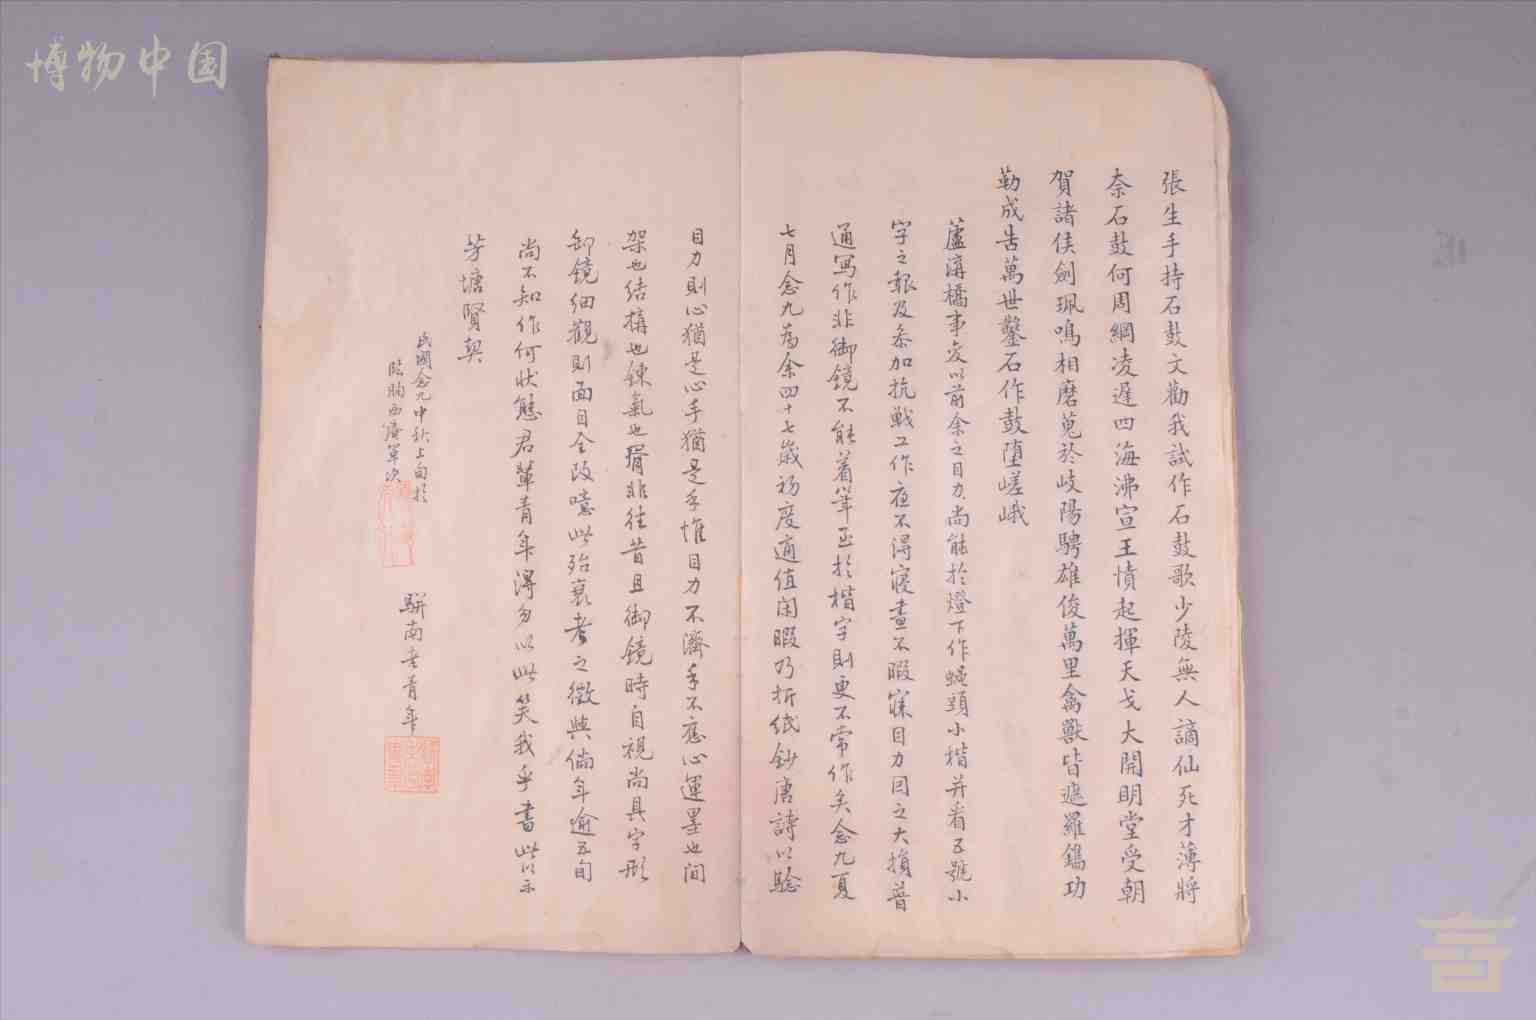 博物中国
張生手持石鼓文勸我試作石鼓歌少陵無人謫仙死才薄將
奈石鼓何周綱凌遲四海沸宣王憤起揮天戈大開明堂受朝
賀諸侯劍珮鳴相磨蒐於岐陽騁雄俊萬里禽獸皆遮羅鐫功
勒成告萬世鑿石作鼓墮嵯峨
蘆溝橋事变以前余之目力尚能於燈下作蠅頭小楷并看五號小
字之報及叅加抗戰工作夜不得寢晝不暇寐目力因之大損普
通寫作非御鏡不能着筆至於楷字則更不常作矣念九夏
七月念九為余四十七歲初度適值閑暇乃折紙鈔唐詩以驗
目力則心猶是心手猶是手惟目力不濟手不應心運墨也間
架也結構也鍊氣也胥非往昔且御鏡時自視尚具字形
卸鏡细觀則面目全改噫此殆衰老之徵與倘年逾五旬
尚不知作何狀態君輩青年得勿以此笑我乎書此以示
芳塘賢契
民國念九中秋上旬於
臨朐西 軍次
駢南老青年